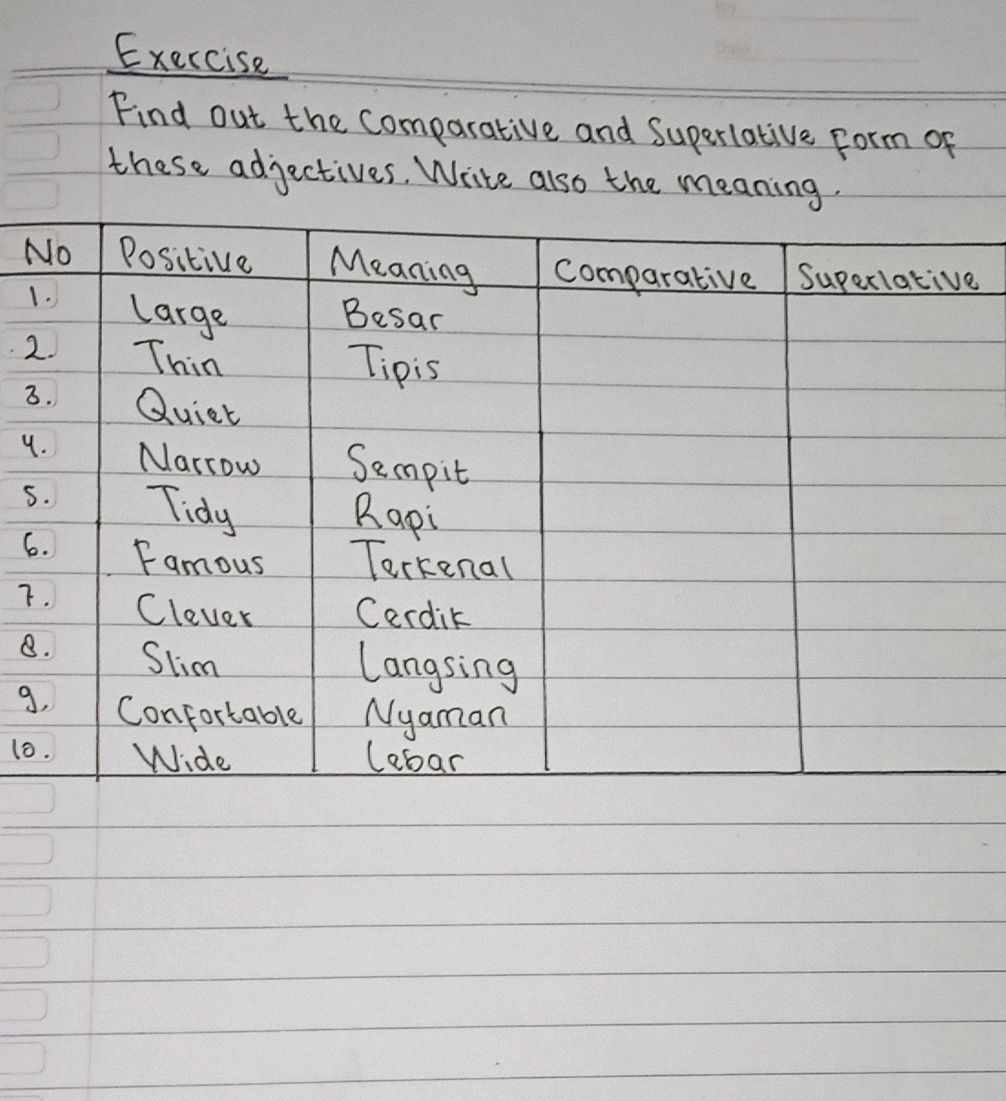 Exercise
Find out the comparative and superlative form of
these adjectives. Write also the meaning.
No Positive Meaning Comparative Superlative
1. Large Besar
2. Thin Tipis
3. Quiet
4. Narrow Sempit
5. Tidy Rapi
6. Famous Terkenal
7. Clever Cerdik
8. Slim Langsing
9. Confortable Nyaman
10. Wide Lebar